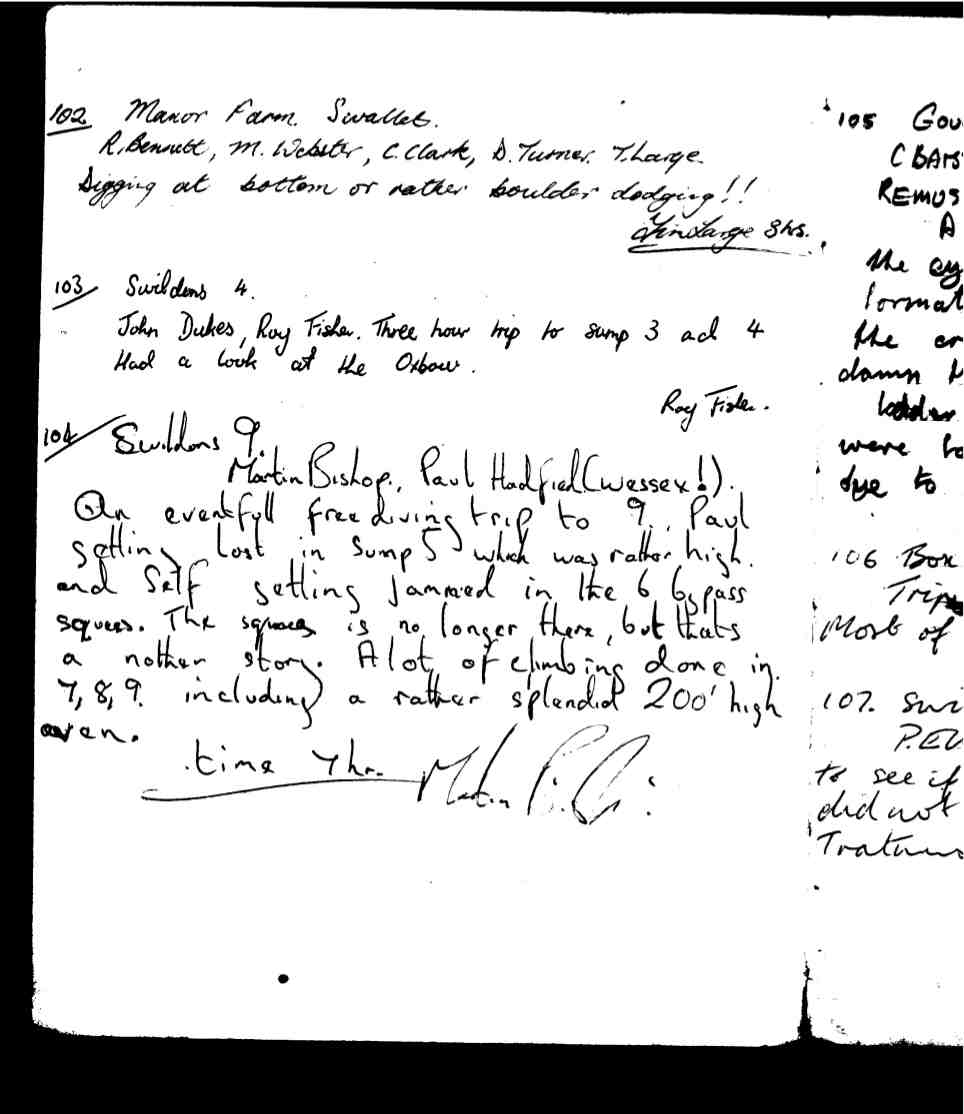 102 Manor Farm Swallet.
R. Bennett, M. Webster, C. Clark, D. Turner. T. Large.
Digging at bottom or rather boulder dodging!!
Tim Large 3 hrs.
103 Swildons 4.
John Dukes, Roy Fisher. Three hour trip to sump 3 ad 4
Had a look at the Oxbow.
Roy Fisher.
104 Swildons 9.
Martin Bishop, Paul Hadfield (Wessex!).
An eventfull free diving trip to 9. Paul
getting lost in Sump 5 which was rather high.
and Self getting Jammed in the 6 bypass
squees. The squees is no longer there, but thats
a nother story. A lot of climbing done in
7, 8, 9. including a rather splendid 200' high
aven.
time 7 hr. Martin
105 Gou
C BAts
REMUS
A
the
format
the
damn
ladder
were
due to
106 Box
Trip
Most of
107. Swi
P.
to see if
did not